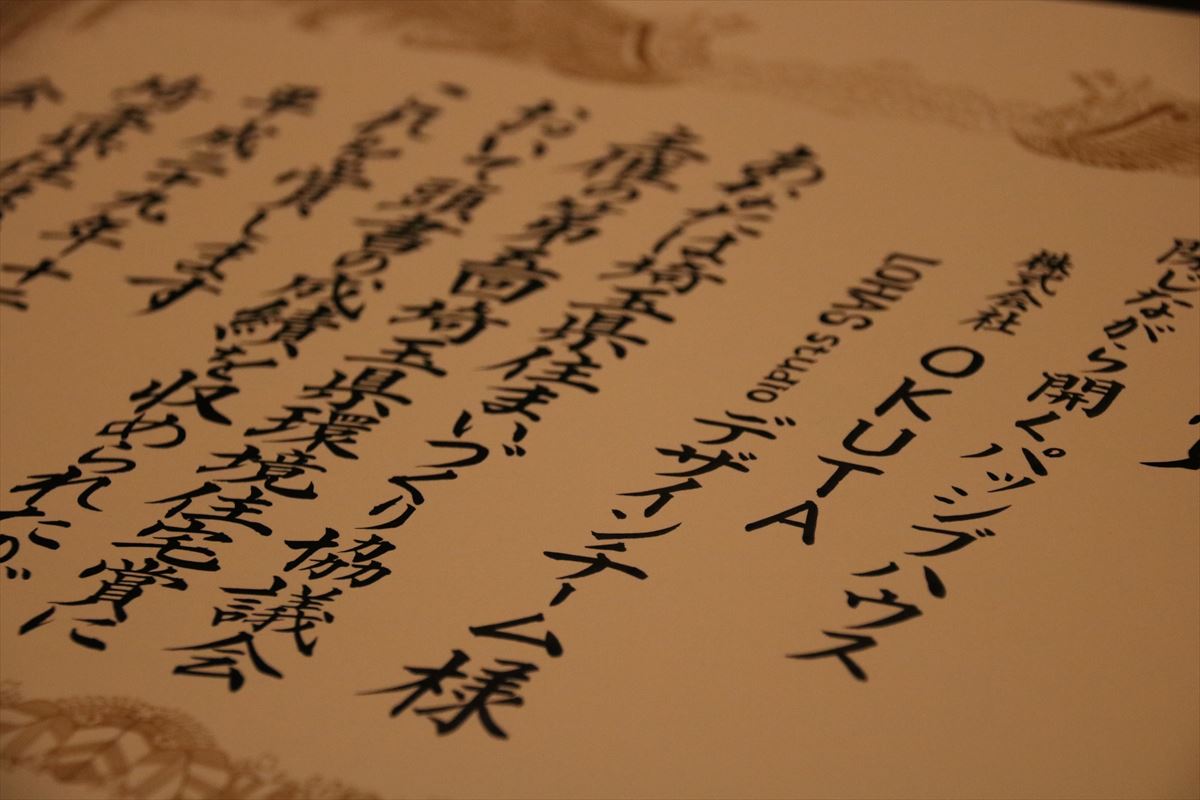 閉じながら開くパッシブハウス
株式会社 OKUTA
LOHAS studio デザインチーム様
あなたは埼玉県住まいづくり協議会
主催の第五回埼玉県環境住宅賞に
おいて頭書の成績を収められたが
、これを賞します
平成二十九年十二